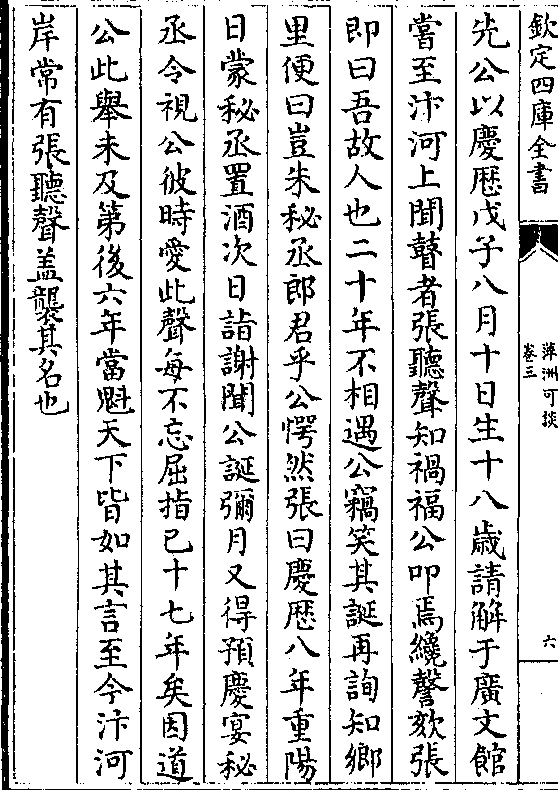 欽定四庫全書
萍洲可談
卷三
六
先公以慶厯戊子八月十日生十八歲請解于廣文館
嘗至汴河上聞瞽者張聽聲知禍福公叩焉纔謦欬張
即曰吾故人也二十年不相遇公竊笑其誕再詢知鄉
里便曰豈朱秘丞郎君乎公愕然張曰慶厯八年重陽
日蒙秘丞置酒次日詣謝聞公誕彌月又得預慶宴秘
丞令視公彼時愛此聲每不忘屈指已十七年矣因道
公此舉未及第後六年當魁天下皆如其言至今汴河
岸常有張聽聲盖襲其名也